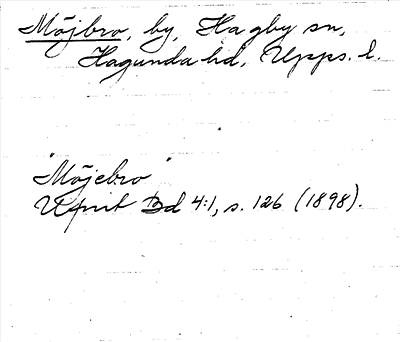 Möjbro, by, Hagby sn,
Hagunda hd, Upps. l.
"Möjebro"
Upmt Bd 4:1, s. 126 (1898).